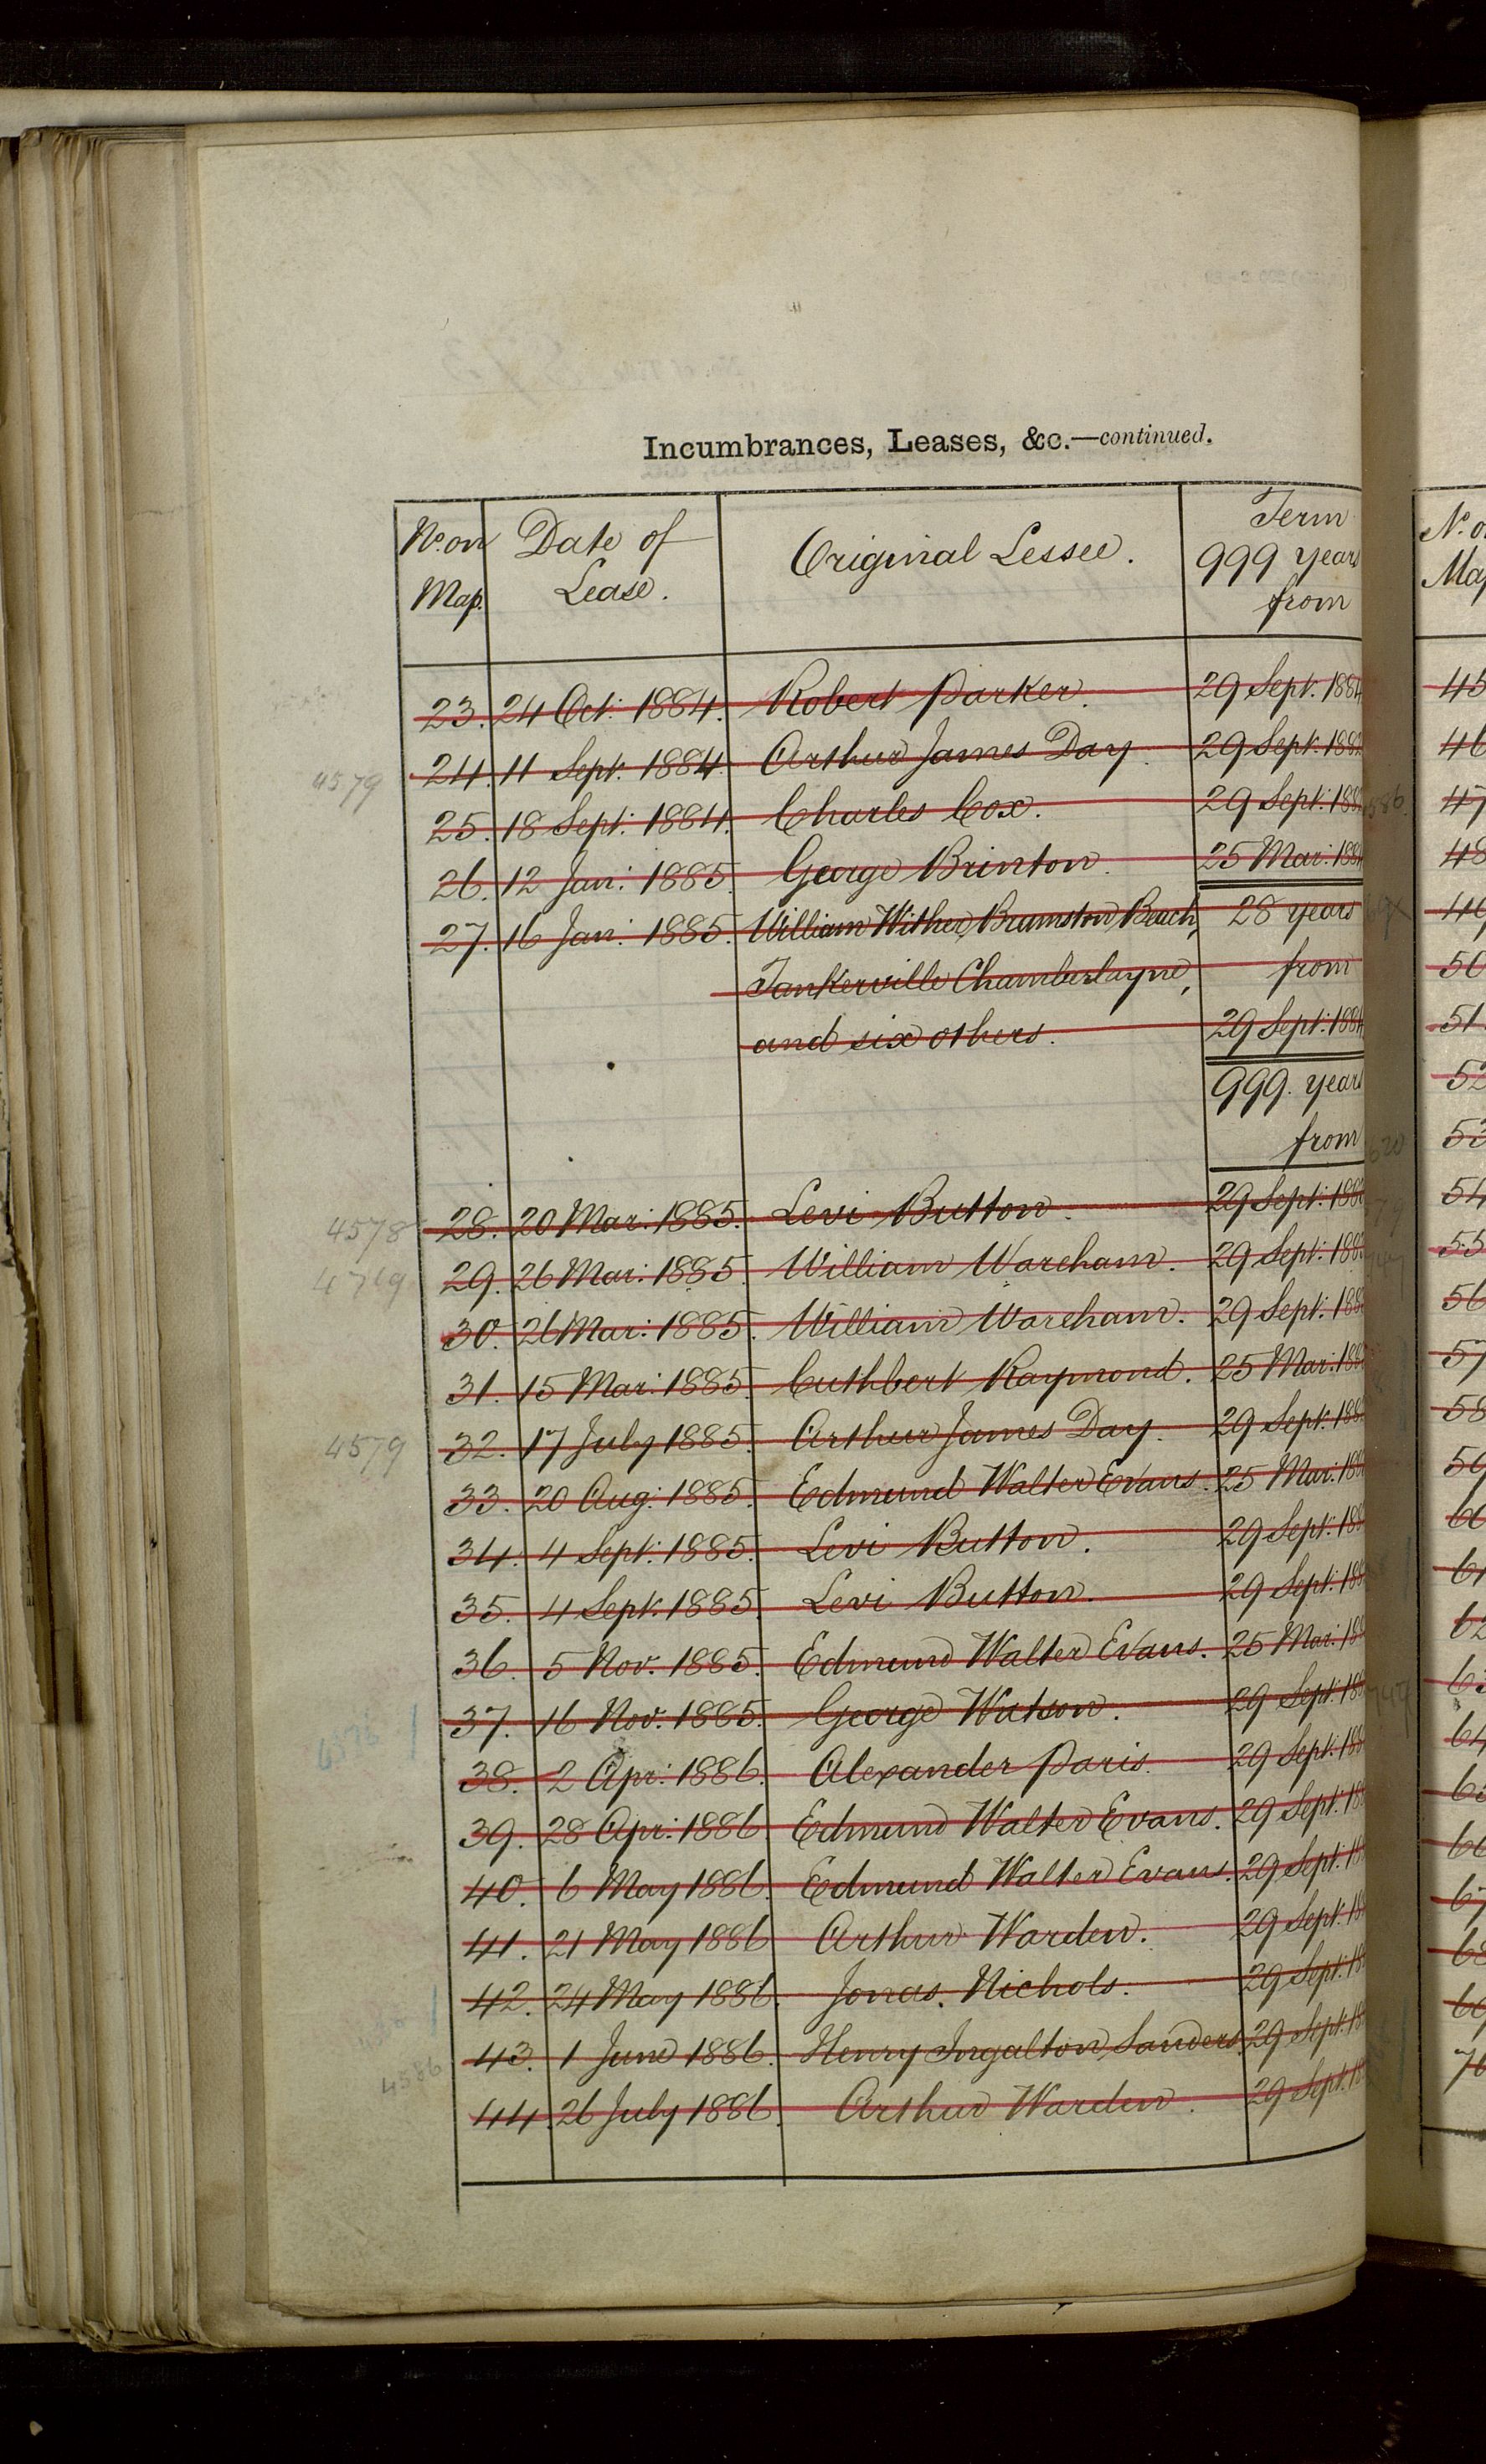 Incumbrances, Leases, &c.—continued.
No. on Map. Date of Lease. Original Lessee. Term 999 years from
23. 24 Oct: 1884. Robert Parker. 29 Sept: 1884
4579 24. 11 Sept: 1884. Arthur James Day. 29 Sept: 188
25. 18 Sept: 1884. Charles Cox. 29 Sept: 188
26. 12 Jan: 1885. George Brinton. 25 Mar: 1884
27. 16 Jan: 1885. William Wither Bramston Beach, 28 years
Tankerville Chamberlayne, from
and six others. 29 Sept: 1884
999. years
from
4578 28. 20 Mar: 1885. Levi Button. 29 Sept: 188
4719 29. 26 Mar: 1885. William Wareham. 29 Sept: 188
30. 26 Mar: 1885. William Wareham. 29 Sept: 188
31. 15 Mar: 1885. Cuthbert Raymond. 25 Mar: 188
4579 32. 17 July 1885. Arthur James Day. 29 Sept: 188
33. 20 Aug: 1885. Edmund Walter Evans. 25 Mar: 188
34. 4 Sept: 1885. Levi Button. 29 Sept: 188
35. 4 Sept: 1885. Levi Button. 29 Sept: 188
36. 5 Nov. 1885. Edmund Walter Evans. 25 Mar: 18
37. 16 Nov. 1885. George Watson. 29 Sept: 18
38. 2 Apr: 1886. Alexander Paris. 29 Sept: 18
39. 28 Apr: 1886 Edmund Walter Evans. 29 Sept: 18
40. 6 May 1886. Edmund Walter Evans. 29 Sept: 18
41. 21 May 1886 Arthur Warden. 29 Sept: 18
42. 24 May 1886. Jonas. Nichols. 29 Sept: 18
4586 43. 1 June 1886. Henry Ingalton Sanders 29 Sept: 18
44. 26 July 1886. Arthur Warden. 29 Sept: 18
45
46
47
48
49
50
51.
52
53
54
55
56
57
58
59
60
61
62
63
64
65
66
67
68
69
70